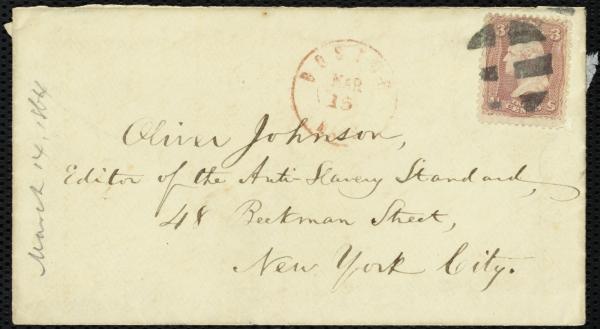 BOSTON
MAR
15
3 3
Oliver Johnson,
Editor of the Anti-Slavery Standard,
48 Beekman Street,
New York City.
March 14, 1864